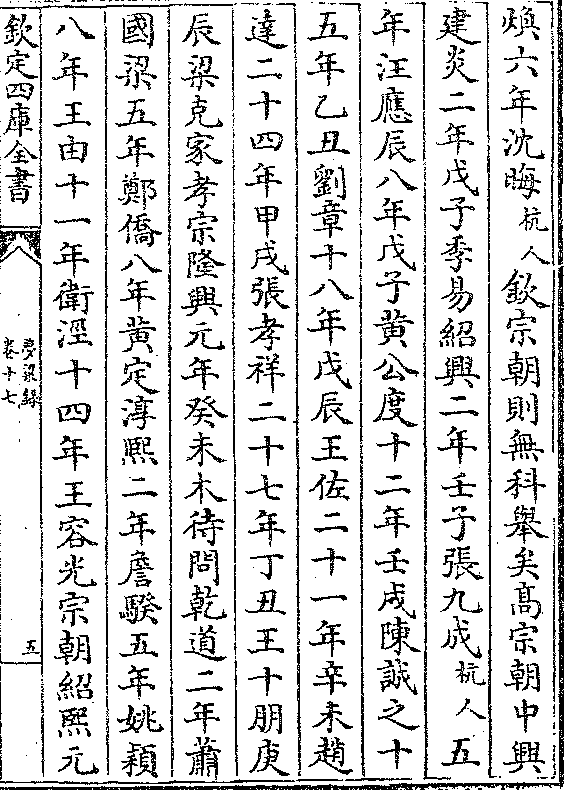 煥六年沈晦杭人欽宗朝則無科舉矣髙宗朝中興
建炎二年戊子李易紹興二年壬子張九成杭人五
年汪應辰八年戊子黄公度十二年壬戌陳誠之十
五年乙丑劉章十八年戊辰王佐二十一年辛未趙
逵二十四年甲戌張孝祥二十七年丁丑王十朋庚
辰梁克家孝宗隆興元年癸未木待問乾道二年蕭
國梁五年鄭僑八年黄定淳熙二年詹騤五年姚穎
八年王由十一年衛涇十四年王容光宗朝紹熙元
欽定四庫全書
夢粱録
卷十七
五